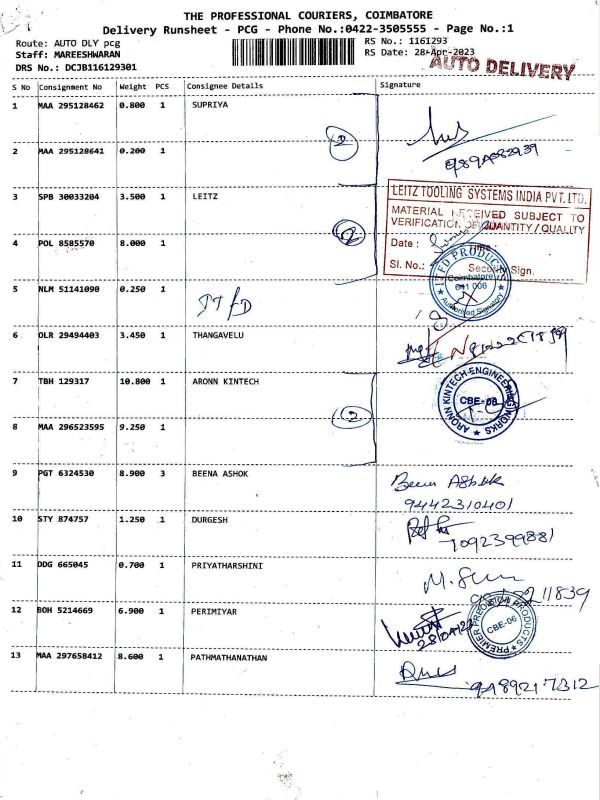 THE PROFESSIONAL COURIERS, COIMBATORE
Delivery Runsheet - PCG - Phone No.:0422-3505555 - Page No.:1
Route: AUTO DLY pcg
RS No.: 1161293
Staff: MAREESHWARAN
RS Date: 28-Apr-2023
DRS No.: DCJB116129301
AUTO DELIVERY
S No Consignment No Weight PCS Consignee Details Signature
1 MAA 295128462 0.800 1 SUPRIYA
2
2 MAA 295128641 0.200 1
3 SPB 30033204 3.500 1 LEITZ
LEITZ TOOLING SYSTEMS INDIA PVT. LTD.
MATERIAL RECEIVED SUBJECT TO
VERIFICATION OF QUANTITY / QUALITY
2
4 POL 8585570 8.000 1
Date :
Sl. No.: Security Sign.
Coimbatore
641 006
Authorised Signatory
5 NLM 51141090 0.250 1
6 OLR 29494403 3.450 1 THANGAVELU
7 TBH 129317 10.800 1 ARONN KINTECH
ARONN KINTECH ENGINEERING WORKS
CBE-06
2
8 MAA 296523595 9.250 1
9 PGT 6324530 8.900 3 BEENA ASHOK
Beena Ashok
9442310401
10 STY 874757 1.250 1 DURGESH
7092399881
11 DDG 665045 0.700 1 PRIYATHARSHINI
12 BOH 5214669 6.900 1 PERIMIYAR
PREMIER PRECISION PRODUCTS
CBE-06
13 MAA 297658412 8.600 1 PATHMATHANATHAN
9489217312